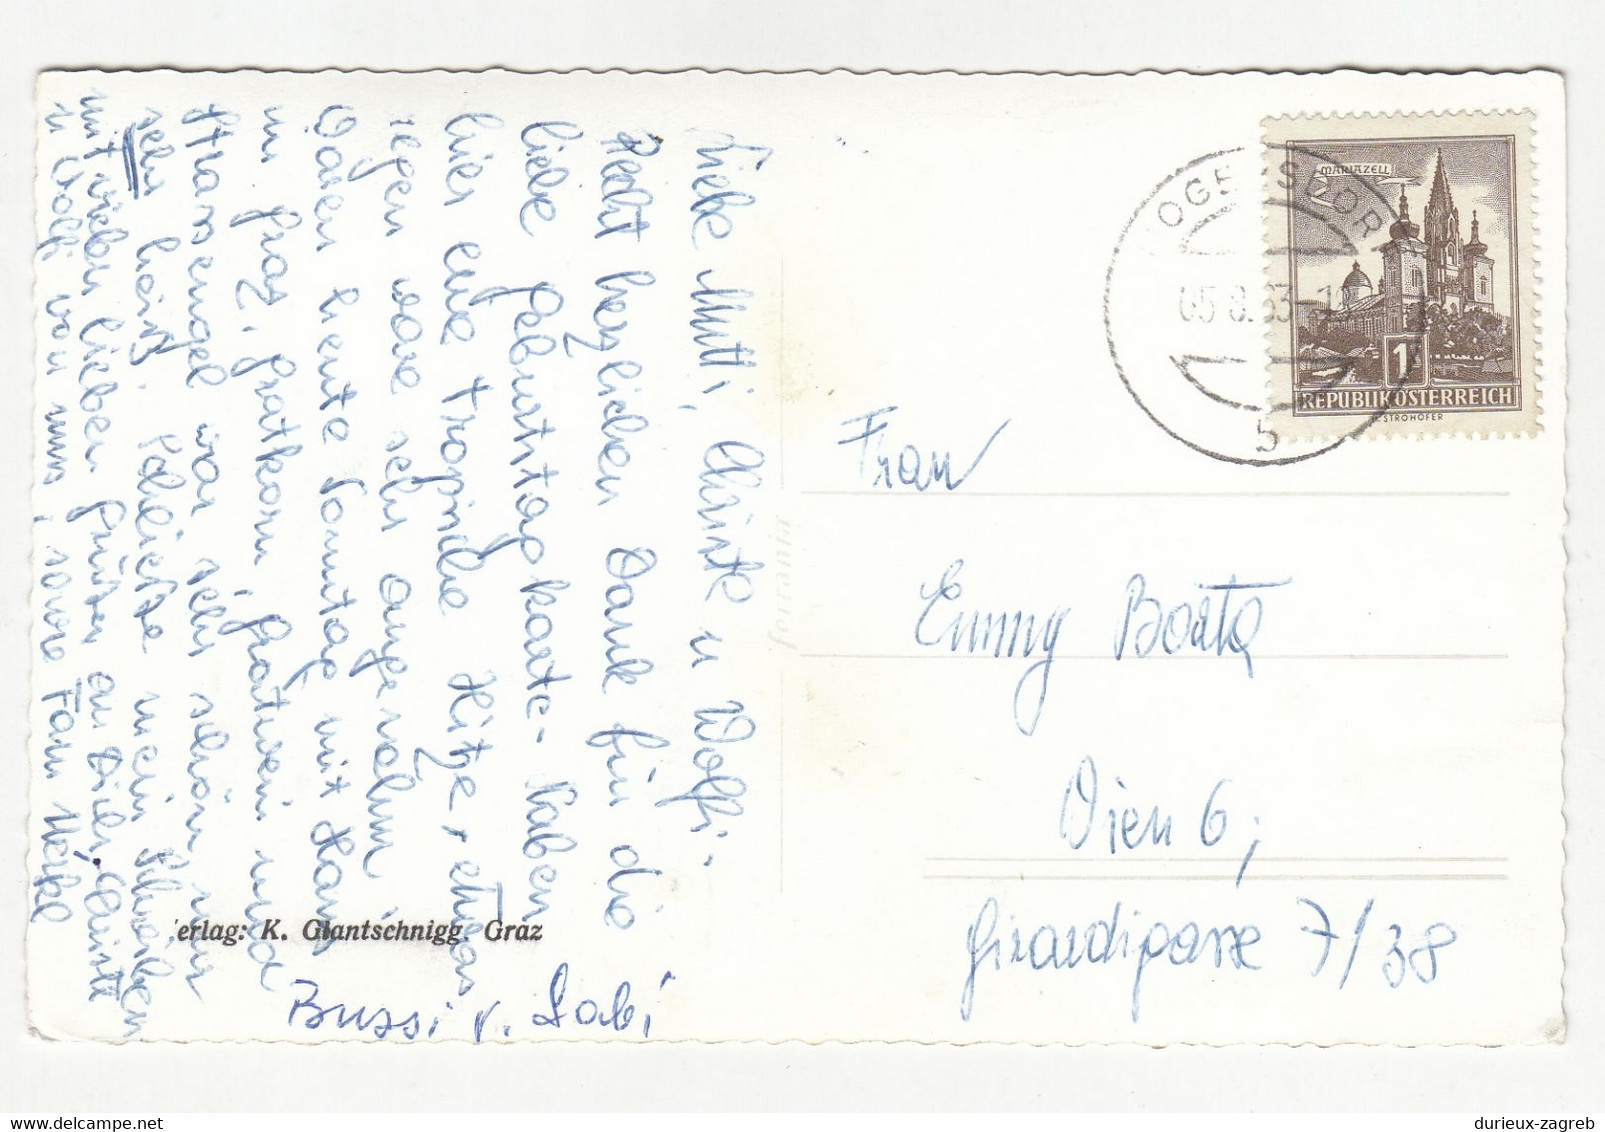 Liebe Mutti, Christl u Wolfi.
Recht herzlichen Dank für die
liebe Geburtstagskarte. Haben
hier eine tropische Hitze, etwas
regen wäre sehr angenehm.
Waren heute Sonntag mit Hans
in Graz, Gratkorn, Gratwein und
war sehr schön nur
sehr heiß. Schließe mein Schreiben
mit vielen lieben Grüßen an Dich, Christl
u Wolfi von uns, sowie Fam
Bussi v. Gabi
Verlag: K. Glantschnigg, Graz
MARIAZELL
1
REPUBLIK ÖSTERREICH
STROHOFER
OGERSDOR
05.8.63-
b
Frau
Emmy Barta
Wien 6,
Girardigasse 7/38
DELCAMPE.NET
durieux-zagreb